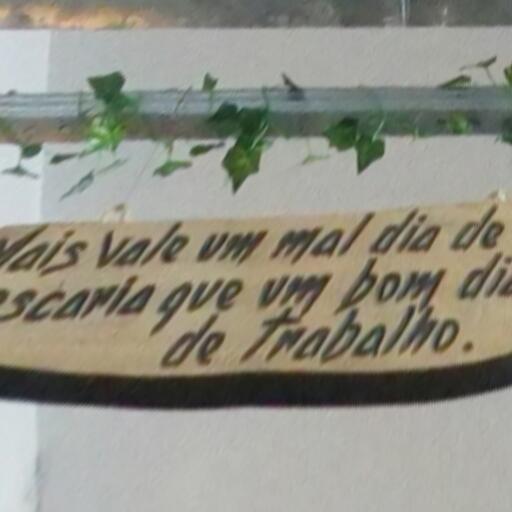 Mais vale um mal dia de
escaria que um bom dia
de trabalho.